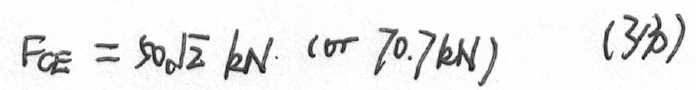 F_CE = 50√2 kN. (or 70.7kN) (3分)